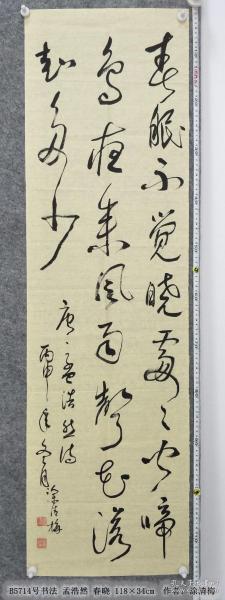 春眠不觉晓处々闻啼
鸟夜来风雨声花落
知多少
唐孟浩然诗
丙申年冬月涂清梅
B5714号书法 孟浩然 春晓 118×34cm 作者：涂清梅